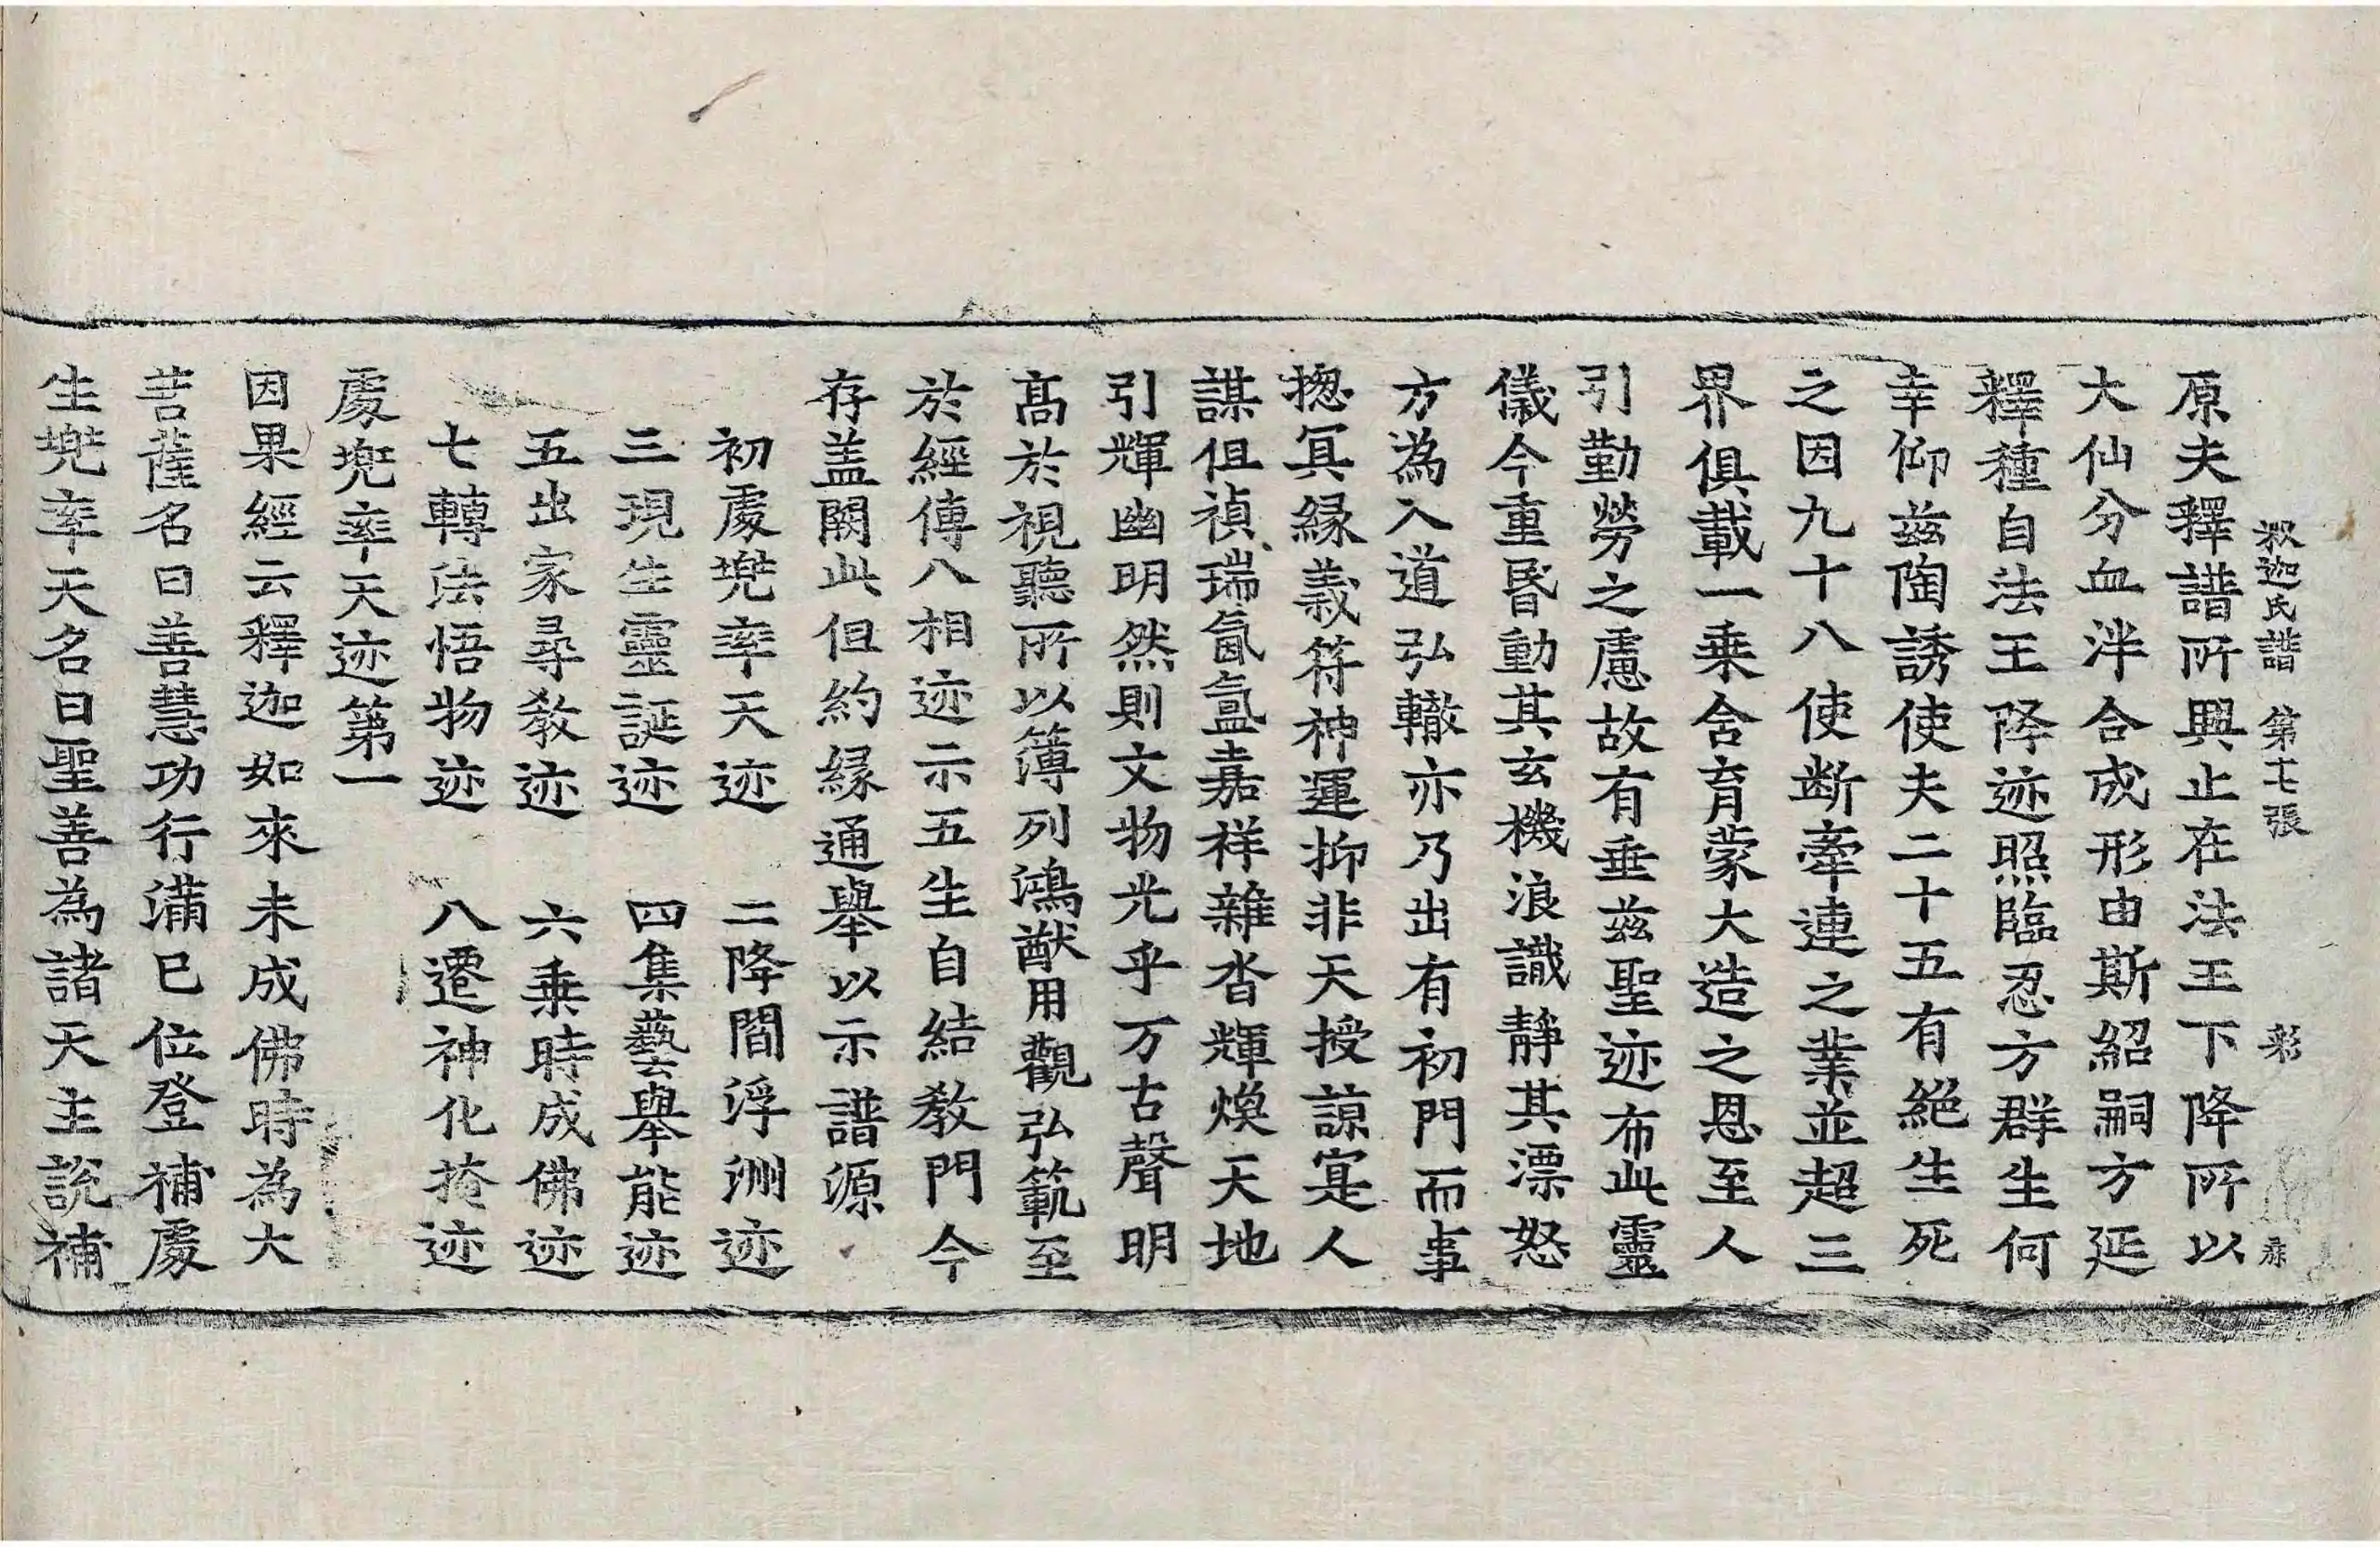 釋迦氏譜 第十七張 彩
原夫釋譜所興止在法王下降所以
大仙分血泮合成形由斯紹嗣方延
釋種自法王降迹照臨忍方群生何
幸仰兹陶誘使夫二十五有絕生死
之因九十八使断牽連之業並超三
界俱載一乗舍育蒙大造之恩至人
引勤勞之慮故有垂兹聖迹布此靈
儀今重昏動其玄機浪識靜其漂怒
方為入道弘轍亦乃出有初門而事
揔冥縁義符神運抑非天授諒寔人
謀但禎瑞氤氳嘉祥雜沓輝煥天地
引輝幽明然則文物光乎万古聲明
髙於視聽所以簿列鴻猷用觀弘範至
於經傳八相迹示五生自結教門今
存盖闕此但約縁通舉以示譜源
初處兜率天迹 二降閻浮洲迹
三現生靈誕迹 四集藝舉能迹
五出家尋教迹 六乗時成佛迹
七轉法悟物迹 八遷神化掩迹
處兜率天迹第一
因果經云釋迦如來未成佛時為大
菩薩名曰善慧功行滿已位登補處
生兜率天名曰聖善為諸天主說補